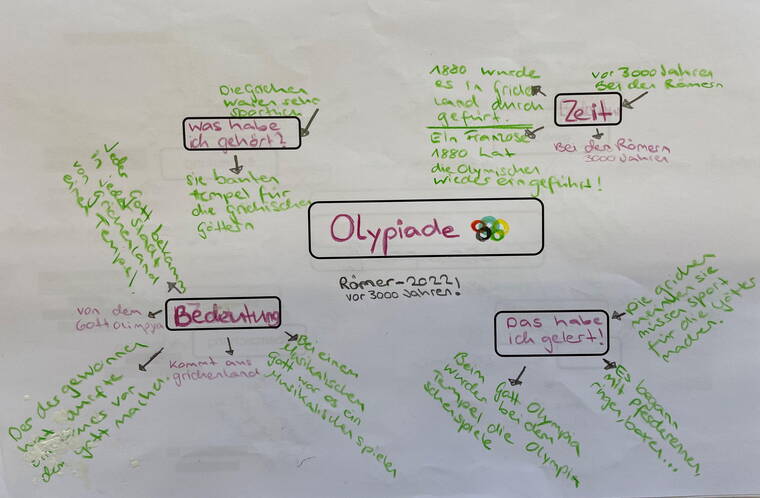 Die Grichen
waren sehr
sportlich
Was habe
ich gehört?
sie bauten
tempel für
die grichischen
Göttern
1880 wurde
es in Griche
land durch
gefürt.
Ein Franzose
1880 hat
die Olymischen
wieder eingeführt!
Zeit
vor 3000 Jahren
Bei den Römern
Bei den Römern
3000 Jahren
Olypiade
Römer-2022!
vor 3000 Jahren!
jeder Gott bekam
von Grichenland
einen Tempel!
Bedeutung
von dem
Gott Olimpya
Der der gewonnen
hat durfte
immer vor
dem gott machen.
Kommt aus
grichenland
Bei einem
Musikalischem
Gott war es ein
Musikalischen spielen
Das habe
ich gelert!
Die grichen
meinten sie
müssen sport
für die Götter
machen.
Beim Gott Olympia
wurder bei dem
Tempel die Olympia
sche spiele
Es begann
mit pferderennen,
ringen, boxen...